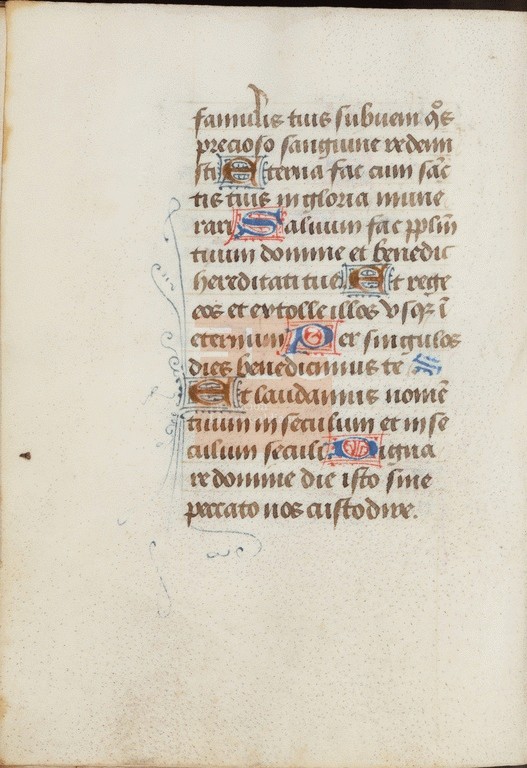 famulis tuis subueni q̄s
precioso sanguine redemi
sti Eterna fac cum sāc
tis tuis in gloria mune
rari Saluum fac pplm̄
tuum domine et benedic
hereditati tue Et rege
eos et extolle illos vsqꝫ ī
eternum Per singulos
dies benedicimus te
Et laudamus nomē
tuum in seculum et in se
culum seculi Digna
re domine die isto sine
peccato nos custodire.